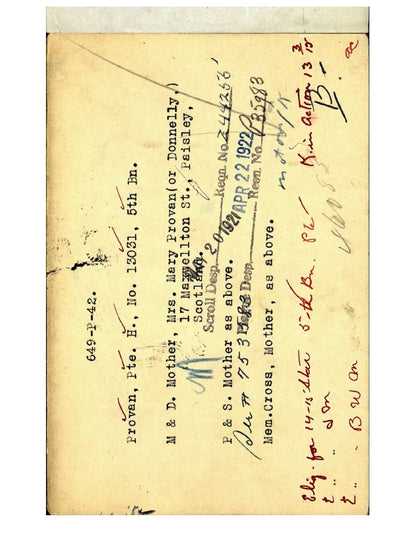 649-P-42.
Provan, Pte. H., No. 13031, 5th Bn.
M & D. Mother, Mrs. Mary Provan(or Donnelly,)
17 Maxwellton St., Paisley,
Scotland.
Scroll Desp. 20 1921 Reqn. No. 244256
P & S. Mother as above.
Plaque Desp. APR 22 1922 Reqn. No. P35983
Ser # 753
Mem.Cross, Mother, as above.
46083
Elig. for 14-15 Star 5th Bn. K in Action 13 3/15
" " B W M
B.